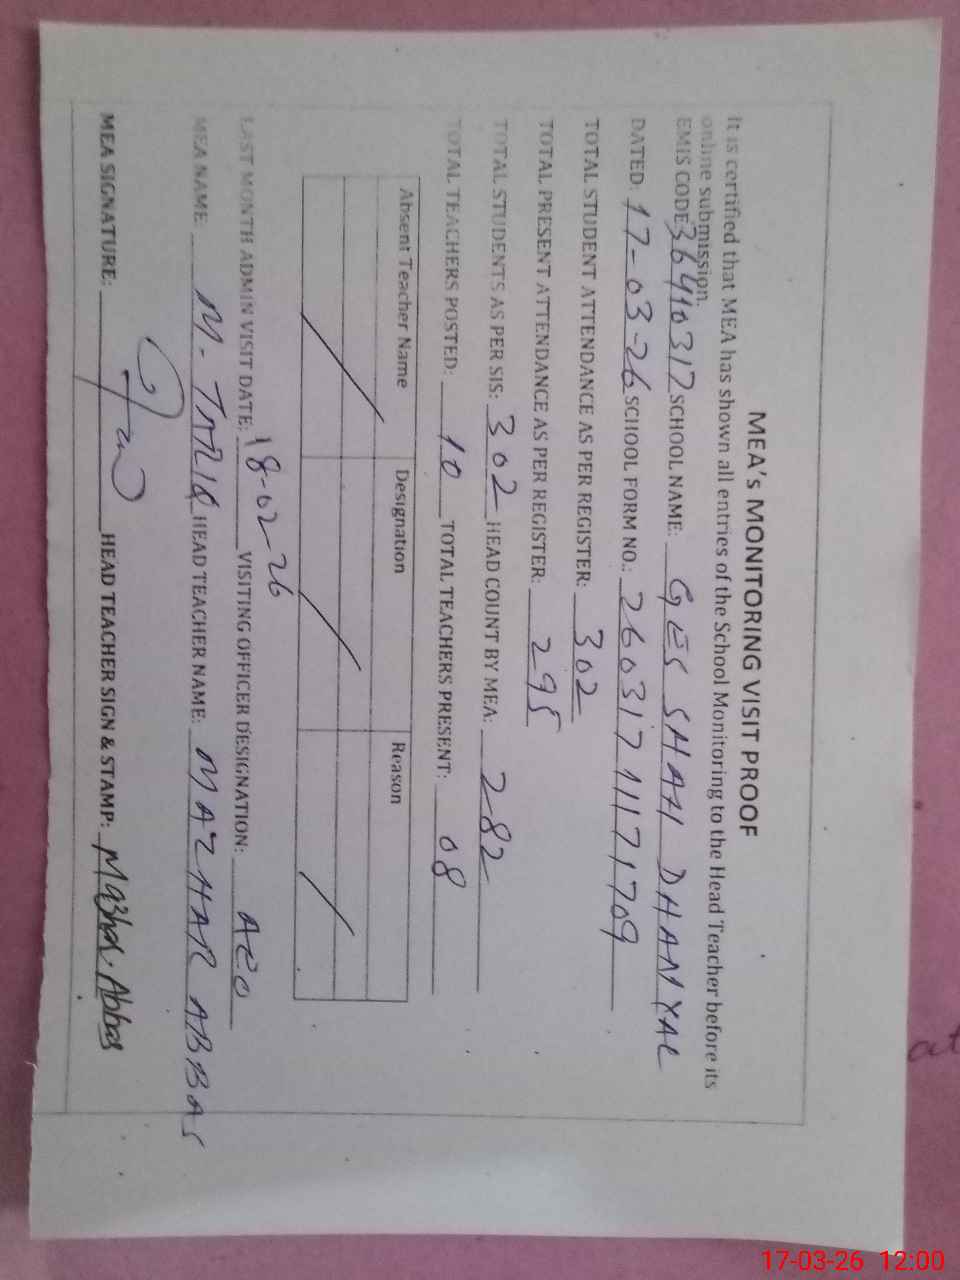 MEA's MONITORING VISIT PROOF
It is certified that MEA has shown all entries of the School Monitoring to the Head Teacher before its
online submission.
EMIS CODE 36410317 SCHOOL NAME: GES SHAH DHAMYAL
DATED: 17-03-26 SCHOOL FORM NO.: 26031711171709
TOTAL STUDENT ATTENDANCE AS PER REGISTER: 302
TOTAL PRESENT ATTENDANCE AS PER REGISTER: 295
TOTAL STUDENTS AS PER SIS: 302 HEAD COUNT BY MEA: 282
TOTAL TEACHERS POSTED: 10 TOTAL TEACHERS PRESENT: 08
Absent Teacher Name Designation Reason
LAST MONTH ADMIN VISIT DATE: 18-02-26 VISITING OFFICER DESIGNATION: AEO
MEA NAME: M. TARIQ HEAD TEACHER NAME: MAZHAR ABBAS
MEA SIGNATURE: HEAD TEACHER SIGN & STAMP: Mazhar Abbas
at
17-03-26 12:00